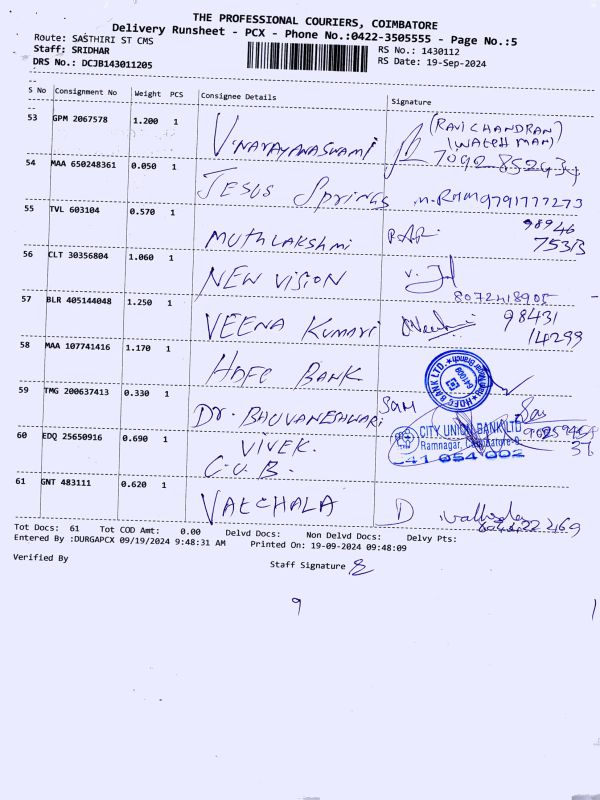 THE PROFESSIONAL COURIERS, COIMBATORE
Delivery Runsheet - PCX - Phone No.:0422-3505555 - Page No.:5
Route: SASTHIRI ST CMS
RS No.: 1430112
Staff: SRIDHAR
RS Date: 19-Sep-2024
DRS No.: DCJB143011205
S No Consignment No Weight PCS Consignee Details Signature
53 GPM 2067578 1.200 1 V. NARAYANASWAMI (RAVI CHANDRAN)
(WATCH MAN)
54 MAA 650248361 0.050 1 JESUS SPRINGS 9791777273
55 TVL 603104 0.570 1 MUTHLAKSHMI 98946
75313
56 CLT 30356804 1.060 1 NEW VISION
8072418905
57 BLR 405144048 1.250 1 VEENA KUMARI 98431
14299
58 MAA 107741416 1.170 1 HDFC BANK
HDFC BANK LTD.
59 TMG 200637413 0.330 1 Dr. BHUVANESHWARI SAM
60 EDQ 25650916 0.690 1 VIVEK.
C.U.B.
CITY UNION BANK LTD
Ramnagar, Coimbatore-9.
41 054 002
61 GNT 483111 0.620 1 VATCHALA D
Tot Docs: 61 Tot COD Amt: 0.00 Delvd Docs: Non Delvd Docs: Delvy Pts:
Entered By :DURGAPCX 09/19/2024 9:48:31 AM Printed On: 19-09-2024 09:48:09
Verified By
Staff Signature
9